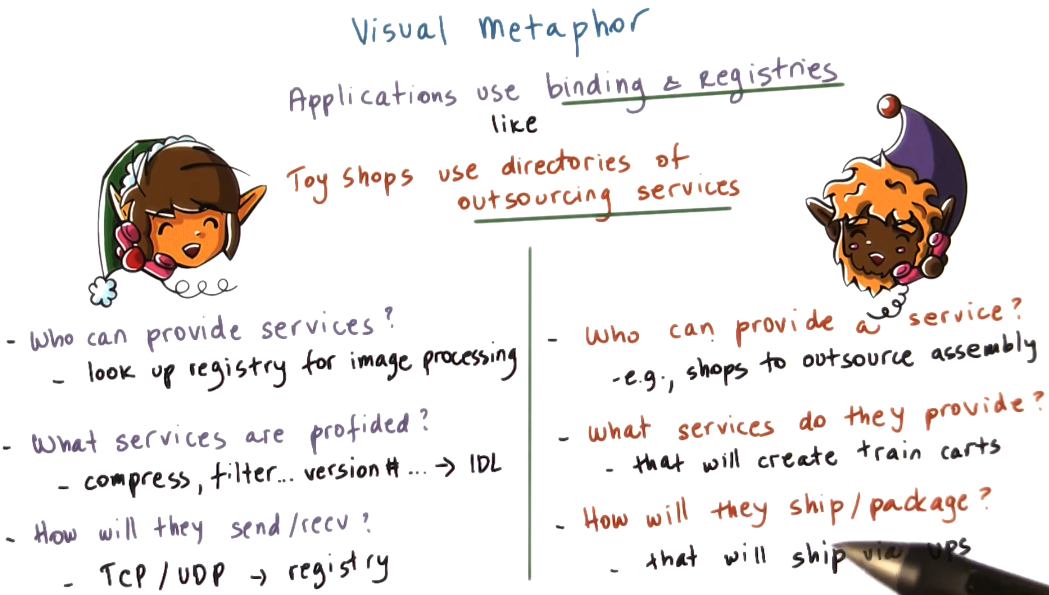 Visual Metaphor
Applications use binding & Registries
like
Toy shops use directories of
outsourcing services
- Who can provide services?
- look up registry for image processing
- What services are profided?
- compress, filter... version# ... → IDL
- How will they send/recv?
- TCP / UDP → registry
- Who can provide a service?
- e.g., shops to outsource assembly
- What services do they provide?
- that will create train carts
- How will they ship/package?
- that will ship via UPS